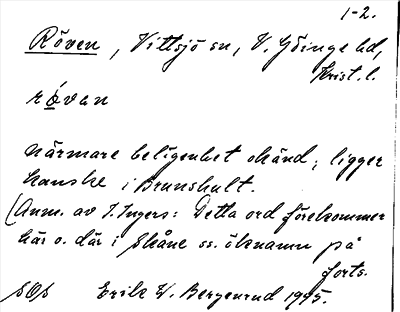 1-2.
Röven, Vittsjö sn, V. Göinge hd,
Krist. l.
rövan
Närmare belägenhet okänd; ligger
kanske i Brunshult.
(Anm. av I. Ingers: Detta ord förekommer
här o. där i Skåne ss. öknamn på
forts.
SOS Erik W. Bergenrud 1945.